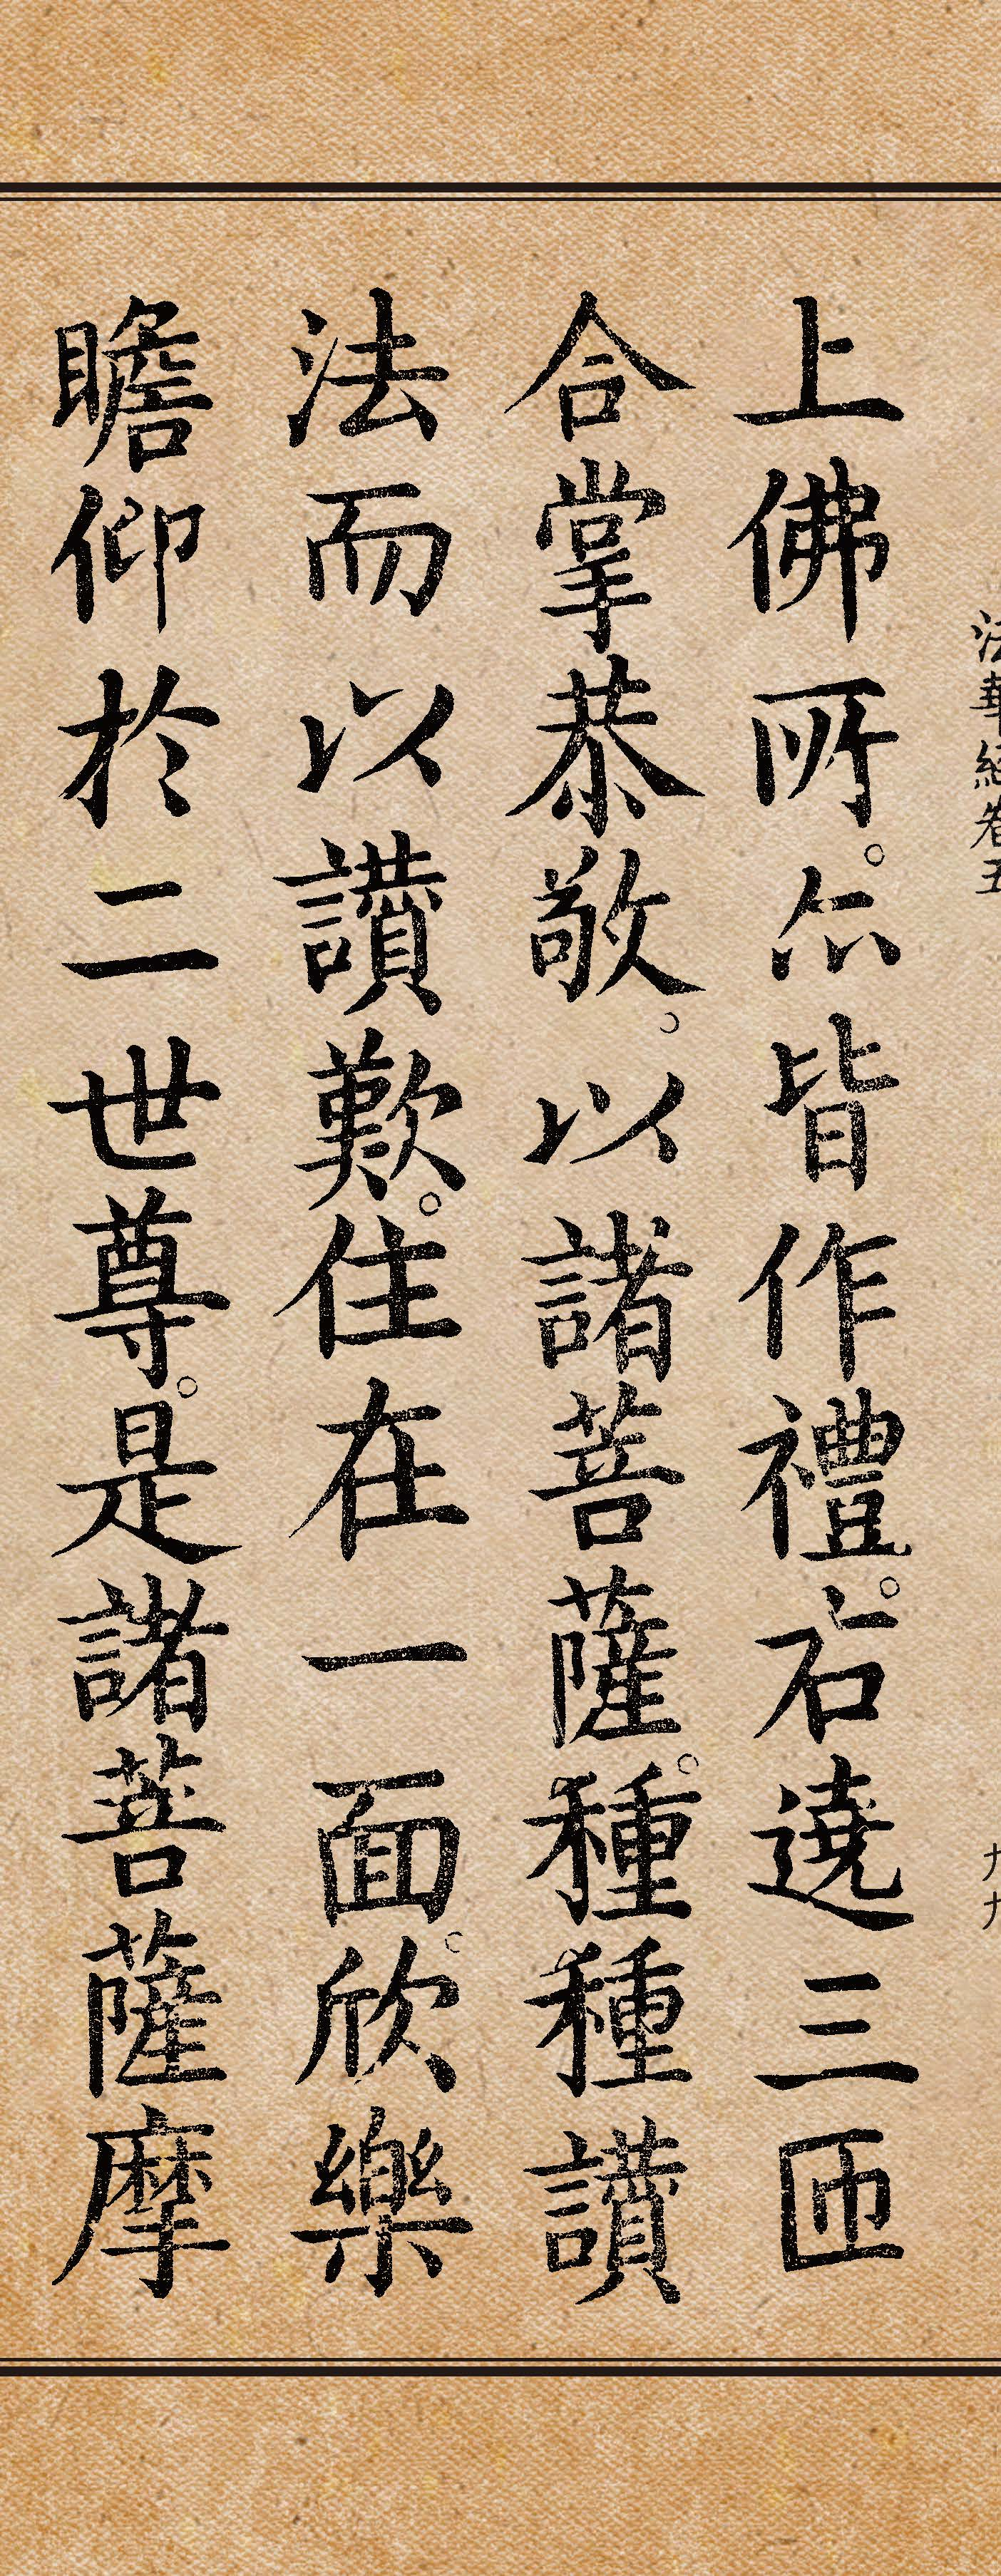 法華經卷五
九九
上佛所。亦皆作禮。右遶三匝
合掌恭敬。以諸菩薩。種種讚
法而以讚歎。住在一面。欣樂
瞻仰於二世尊。是諸菩薩摩